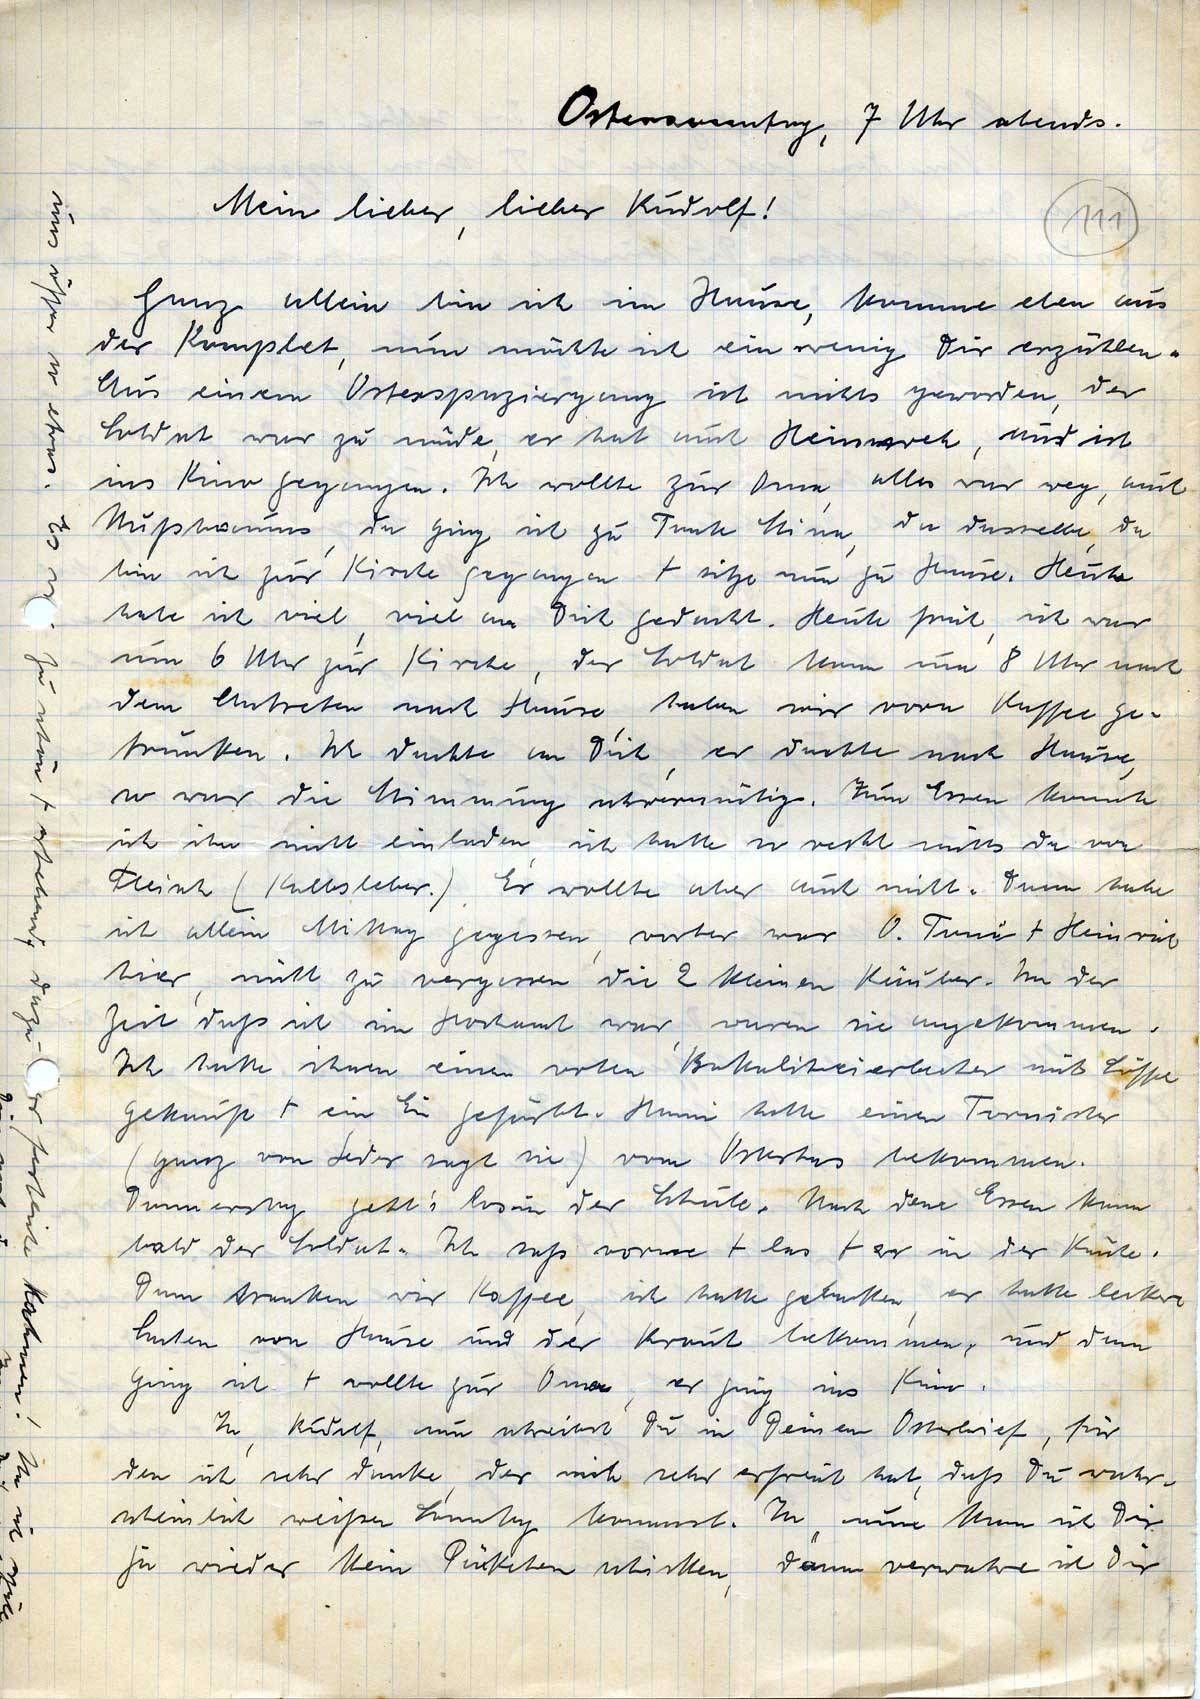 Ostersonntag, 7 Uhr abends.
111
Mein lieber, lieber Rudolf!
Ganz allein bin ich im Hause, komme eben aus
der Komplet, nun möchte ich ein wenig Dir erzählen.
Aus einem Osterspaziergang ist nichts geworden, der
Soldat war zu müde, er hat auch Heimweh, und ist
ins Kino gegangen. Ich wollte zur Oma, alles war weg, auch
Nußbaums, da ging ich zu Tante Mina, da dasselbe, da
bin ich zur Kirche gegangen + sitze nun zu Hause. Heute
habe ich viel, viel an Dich gedacht. Heute früh, ich war
um 6 Uhr zur Kirche, der Soldat kam um 8 Uhr nach
dem Antreten nach Hause, haben wir vorn Kaffee ge-
trunken. Ich dachte an Dich, er dachte nach Hause,
so war die Stimmung schwermütig. Zum Essen konnte
ich ihn nicht einladen, ich hatte so recht nichts da von
Fleisch (Kalbsleber.) Er wollte aber auch nicht. Dann habe
ich allein Mittag gegessen, vorher war O. Toni + Heinrich
hier, nicht zu vergessen die 2 kleinen Räuber. In der
Zeit daß ich im Hochamt war, waren sie angekommen.
Ich hatte ihnen einen roten Bakeliteierbecher mit Löffel
gekauft + ein Ei gefärbt. Hanni hatte einen Tornister
(ganz von Leder sagt sie) vom Osterhas bekommen.
Donnerstag geht's los in der Schule. Nach dem Essen kam
bald der Soldat. Ich saß vorne + las + er in der Küche.
Dann tranken wir Kaffee, ich hatte gebacken, er hatte leckre
Sachen von Hause und der Braut bekommen, und dann
ging ich + wollte zur Oma, er ging ins Kino.
Ja, Rudolf, nun schreibst Du in Deinem Osterbrief, für
den ich sehr danke, der mich sehr erfreut hat, daß Du wahr-
scheinlich weißen Sonntag kommst. Ja, nun kann ich Dir
ja wieder kein Päkchen schicken, dann verwahre ich Dir